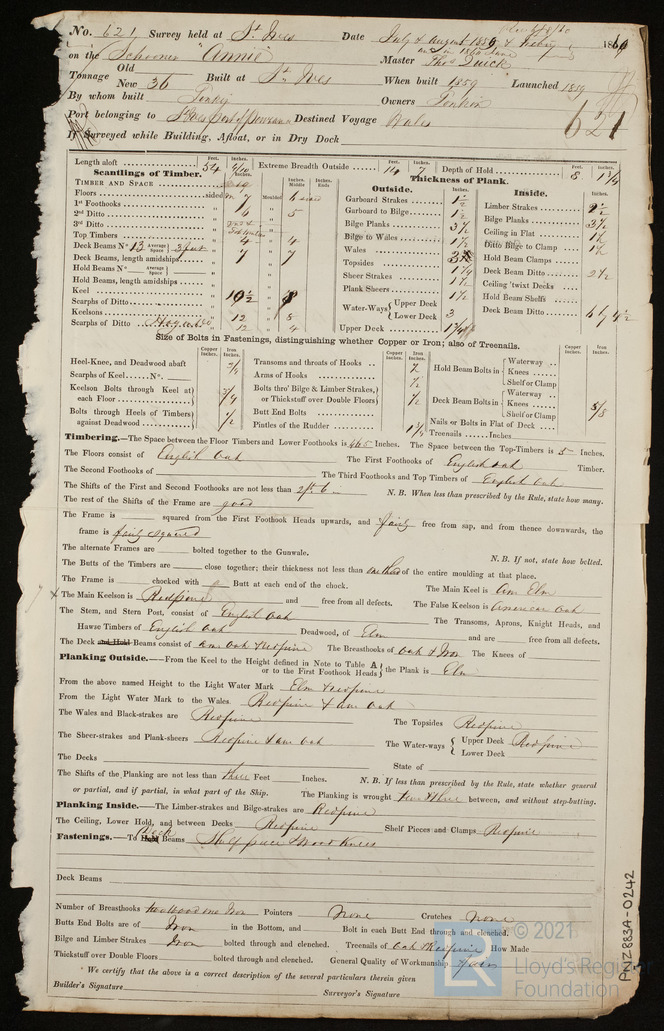 No. 621 Survey held at St. Ives Date July & August 1859 & 
on the Schooner "Annie" Master Thos Quick
Tonnage Old New 36 Built at St. Ives When built 1859 Launched 1859
By whom built Owners
Port belonging to Destined Voyage Wales
621
If Surveyed while Building, Afloat, or in Dry Dock
Length aloft 54 Feet. Inches. Extreme Breadth Outside 14 7 Depth of Hold 8
Scantlings of Timber.
Thickness of Plank.
Outside. Inside.
TIMBER AND SPACE
Floors sided 7 Moulded
1st Foothooks
2nd Ditto 6 5
3rd Ditto
Top Timbers 4 4
Deck Beams No 13 Average Space 3 feet
Deck Beams, length amidships 7 7
Hold Beams No Average Space
Hold Beams, length amidships
Keel 10 1/2 8
Scarphs of Ditto
Keelsons 12 8
Scarphs of Ditto 12 4
Garboard Strakes 1 1/2
Garboard to Bilge 1 1/2
Bilge Planks 3 1/2
Bilge to Wales 1 1/2
Wales
Topsides 1 1/4
Sheer Strakes 1 1/2
Plank Sheers 1 1/2
Water-Ways Upper Deck Lower Deck 3
Upper Deck
Limber Strakes
Bilge Planks 3 1/2
Ceiling in Flat 1 1/2
Ditto Bilge to Clamp 1 1/2
Hold Beam Clamps
Deck Beam Ditto 2 1/2
Ceiling 'twixt Decks
Hold Beam Shelfs
Deck Beam Ditto
Size of Bolts in Fastenings, distinguishing whether Copper or Iron; also of Treenails.
Copper Inches. Iron Inches. Copper Inches. Iron Inches. Copper Inches. Iron Inches.
Heel-Knee, and Deadwood abaft
Scarphs of Keel No.
Keelson Bolts through Keel at each Floor 3/4
Bolts through Heels of Timbers against Deadwood 1/2
Transoms and throats of Hooks
Arms of Hooks
Bolts thro' Bilge & Limber Strakes, or Thickstuff over Double Floors 1/2
Butt End Bolts
Pintles of the Rudder
Hold Beam Bolts in Waterway Knees Shelf or Clamp
Deck Beam Bolts in Waterway Knees Shelf or Clamp 5/8
Nails or Bolts in Flat of Deck
Treenails Inches
Timbering.—The Space between the Floor Timbers and Lower Foothooks is Inches. The Space between the Top-Timbers is 5 Inches.
The Floors consist of English Oak The First Foothooks of English oak Timber.
The Second Foothooks of The Third Foothooks and Top Timbers of English Oak
The Shifts of the First and Second Foothooks are not less than 2ft 6 N. B. When less than prescribed by the Rule, state how many.
The rest of the Shifts of the Frame are good
The Frame is squared from the First Foothook Heads upwards, and fairly free from sap, and from thence downwards, the
frame is fairly squared
The alternate Frames are bolted together to the Gunwale. N. B. If not, state how bolted.
The Butts of the Timbers are close together; their thickness not less than one third of the entire moulding at that place.
The Frame is chocked with Butt at each end of the chock. The Main Keel is Am Elm
x The Main Keelson is Redpine and free from all defects. The False Keelson is American Oak
The Stem, and Stern Post, consist of English Oak The Transoms, Aprons, Knight Heads, and
Hawse Timbers of English Oak Deadwood, of Elm and are free from defects.
The Deck and Hold Beams consist of am Oak & Redpine The Breasthooks of Oak & Iron The Knees of
Planking Outside.—From the Keel to the Height defined in Note to Table A or to the First Foothook Heads the Plank is Elm
From the above named Height to the Light Water Mark Elm & redpine
From the Light Water Mark to the Wales Redpine & am Oak
The Wales and Black-strakes are Redpine The Topsides Redpine
The Sheer-strakes and Plank-sheers Redpine & am oak The Water-ways Upper Deck Redpine Lower Deck
The Decks State of
The Shifts of the Planking are not less than three Feet Inches. N. B. If less than prescribed by the Rule, state whether general
or partial, and if partial, in what part of the Ship. The Planking is wrought two & three between, and without step-butting.
Planking Inside.—The Limber-strakes and Bilge-strakes are Redpine
The Ceiling, Lower Hold, and between Decks Redpine Shelf Pieces and Clamps Redpine
Fastenings.—To Hold Deck Beams Shelf piece & wood Knees
Deck Beams
Number of Breasthooks two wood one Iron Pointers None Crutches None
Butts End Bolts are of Iron in the Bottom, and Bolt in each Butt End through and clenched.
Bilge and Limber Strakes Iron bolted through and clenched. Treenails of Oak & Redpine How Made
Thickstuff over Double Floors bolted through and clenched. General Quality of Workmanship Fair
We certify that the above is a correct description of the several particulars therein given
Builder's Signature Surveyor's Signature
PNZ883A-0242
© 2021
Lloyd's Register
Foundation